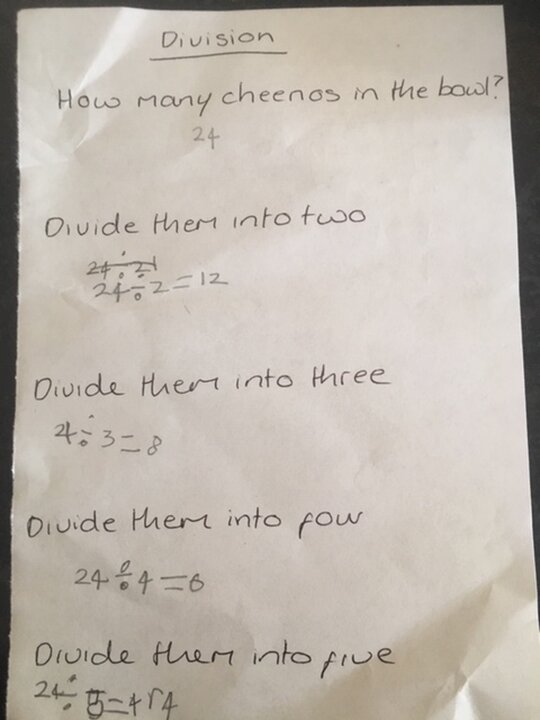 Division
How many cheerios in the bowl?
24
Divide them into two
24÷2
24÷2=12
Divide them into three
4÷3=8
Divide them into four
24÷4=6
Divide them into five
24÷5=4r4